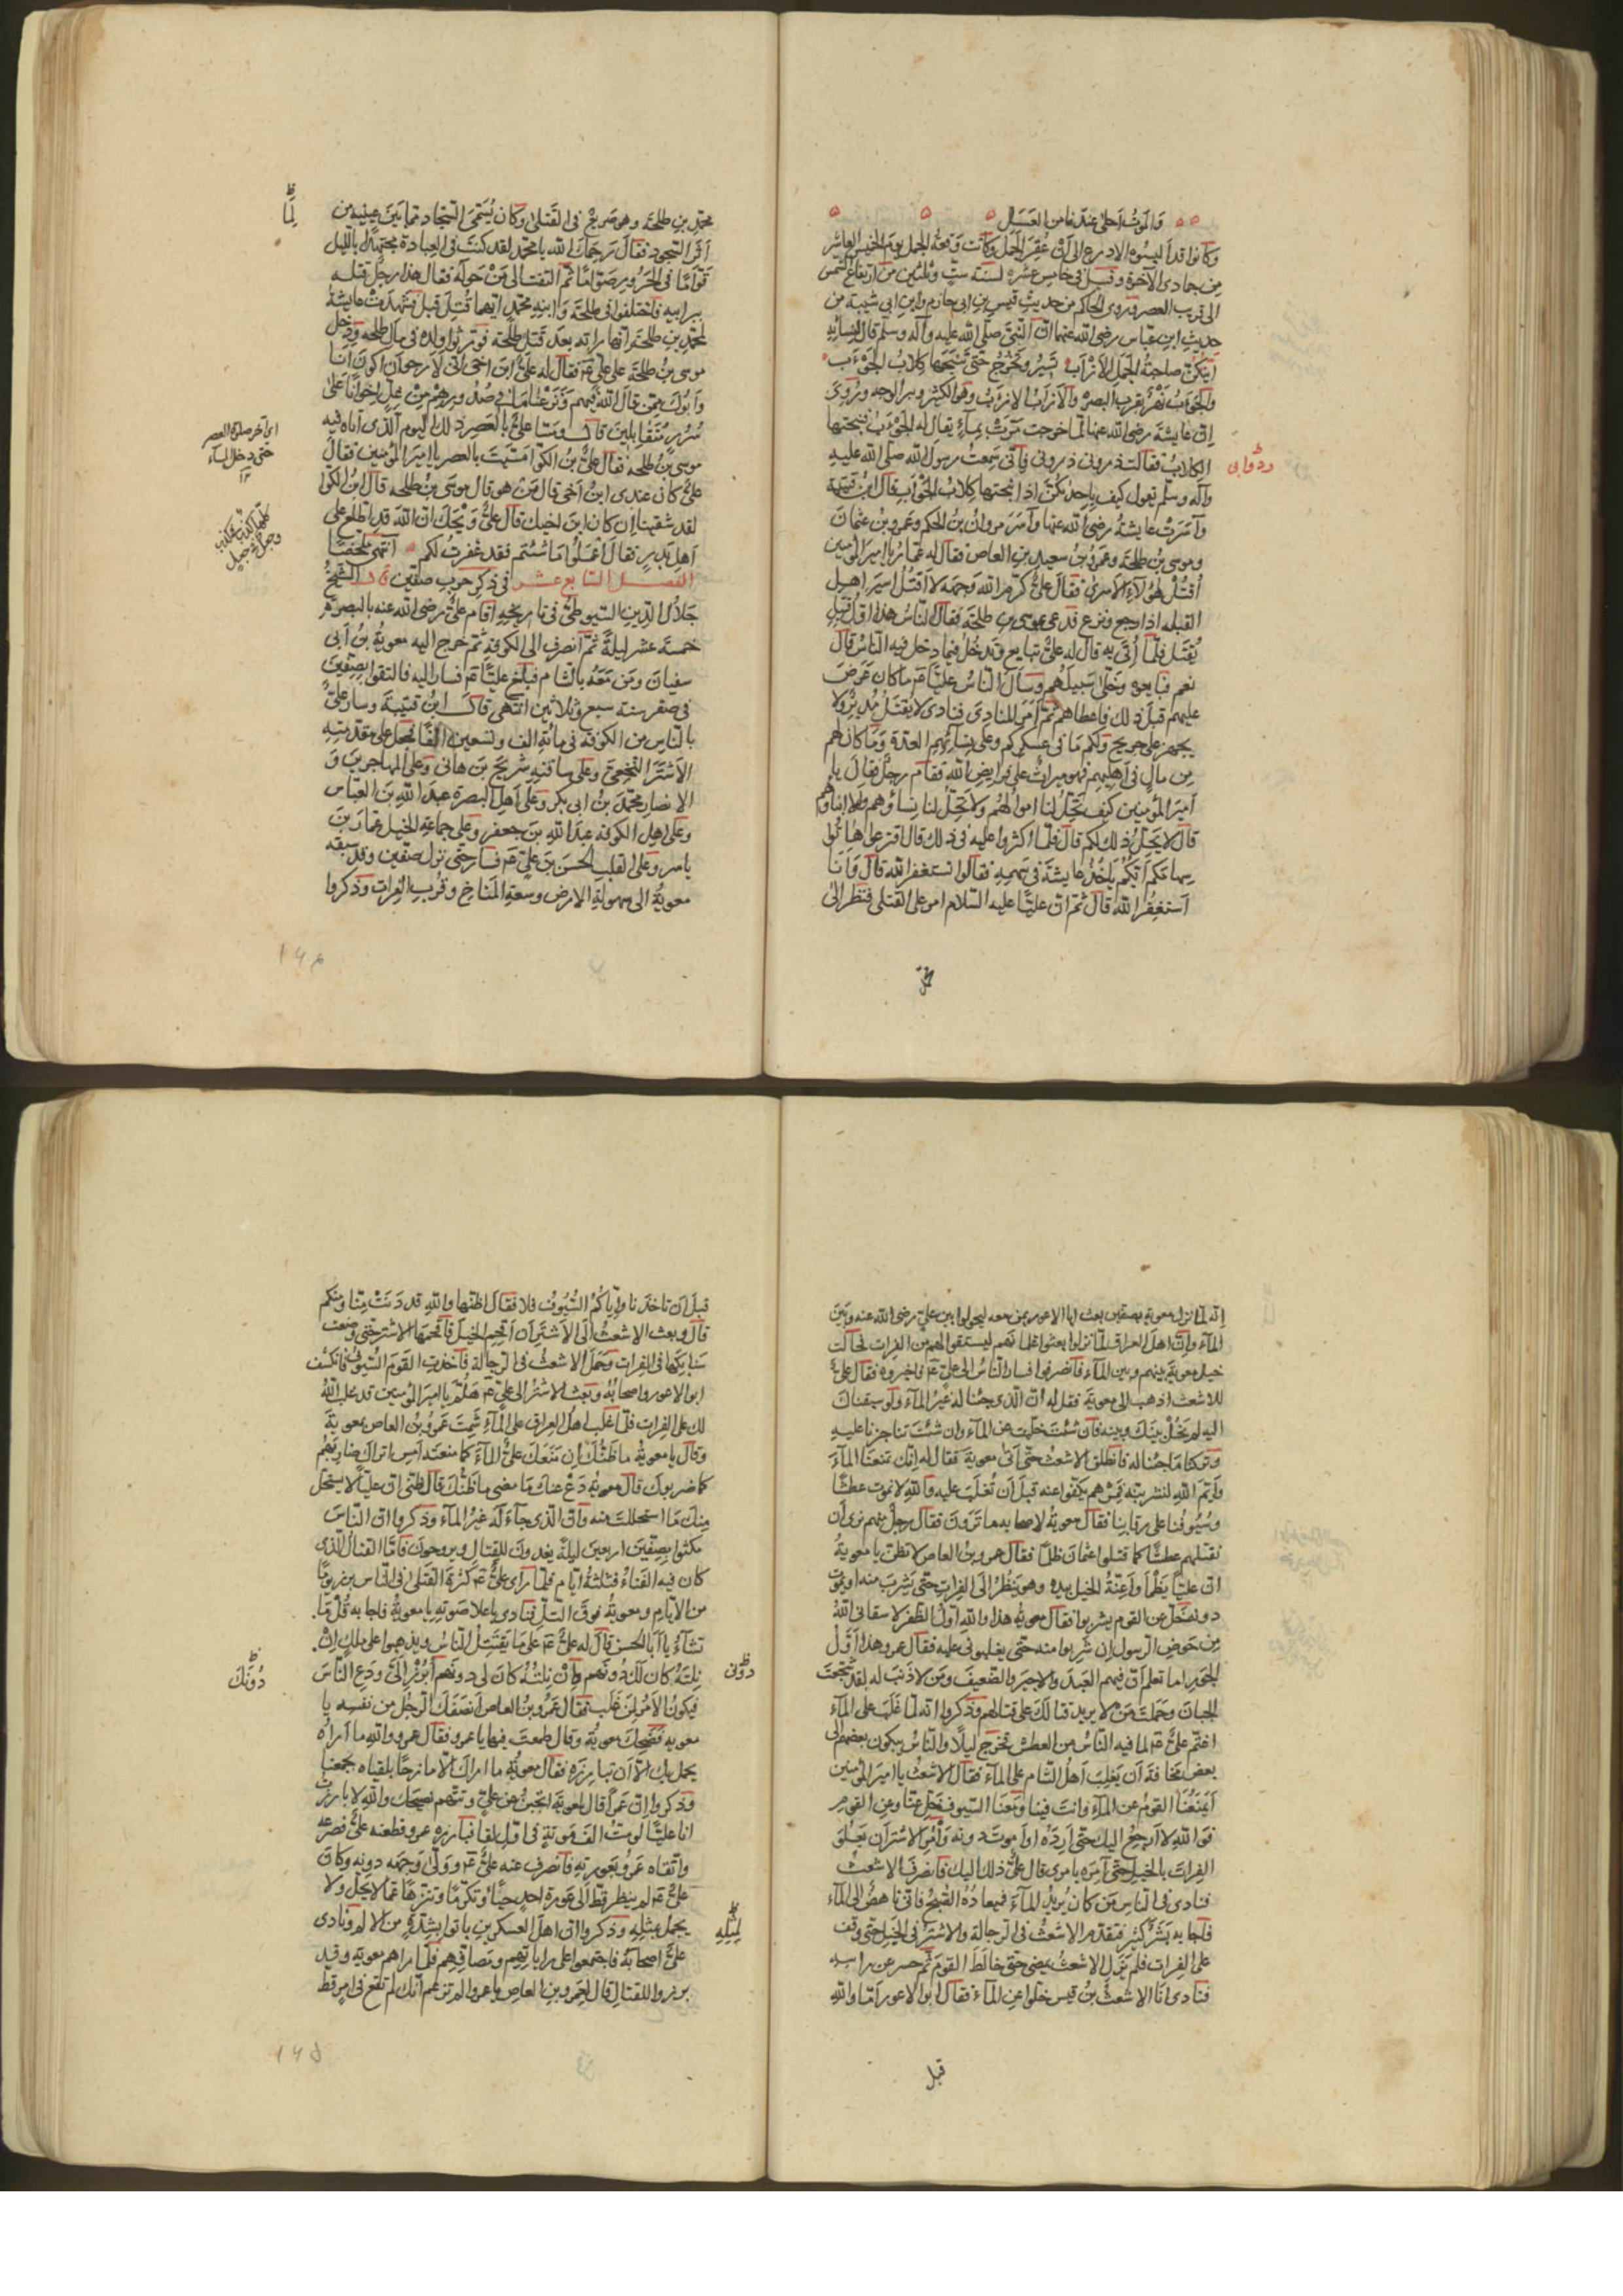 وَالموتُ أحلى عندنا من العَسَل
وكانوا قد ألبسوه الادرع الى أن عُقِرَ الجمل وكانت وقعة الجمل يوم الخميس العاشر
مِن جمادى الآخرة وقيل فى خامس عشره لسنة ستٍّ وثلثين من ارتفاع الشمس
الى قريب العصر وروى الحاكم من حديث قيسِ بنِ ابى حازم وابن ابى شيبة من
حديثِ ابنِ عبّاس رضى الله عنهما انّ النّبىَّ صلّى الله عليه وآله وسلم قال لنسائِهِ
أيتكنّ صاحبةُ الجمل الأزْأَب تسِيرُ وتخرُج حتّى تنبحَها كِلابُ الحَوْءَب
والحوءب نهرٌ بقرب البصرة والأزأبُ الازبّ وهو الكثير وبر الوجه ورُوِىَ
انّ عايشة رضى الله عنها لمّا خرجت مرّت بمآءٍ يقال له الحَوْءَب فنبحتها
الكِلابُ فقالت ذرونى ذرونى فانّى سَمِعتُ رسول الله صلّى الله عليه
وآله وسلّم يقول كيف بإحداكنَّ اذا نبحتها كِلابُ الحَوْأب قال ابنُ قتيبة
وأسَرَتْ عايشةُ رضى الله عنها وأُسِرَ مروانُ بنُ الحكم وعمرو بنُ عثمان
وموسى بنُ طلحة وعمرُو بنُ سعيد بنِ العاص فقال له عمّارُ يا امير المؤمنين
أقتُلْ هؤلآءِ الأسرى فقال علىٌّ كرّم الله وجهه لا أقتُلُ اسيرَ اهل
القبله اذا رجع ونزع فدعى بموسى بنِ طلحة فقال النّاسُ هذا اوّلُ قتيلٍ
يُقتَل فلمّا أُتِىَ به قال له علىٌّ تبايع وتدخُلُ فيما دخل فيه النّاسُ قال
نعم فبايعوه وخلّى سَبيلَهُم وسأل النّاسُ عليّاً ءم ماكان عَرَضَ
عليهم قبل ذلك فاعطاهم ثمّ أمَرَ المنادى فنادى لا يُقتَلُ مُدبِرٌ ولا
يجهز على جريح ولكم مَا فى عسكركم وعلى نِسائِهِم العدة وَما كان لهم
مِن مالٍ فى اهليهم فهو ميراثٌ على فرايض الله فقام رجلٌ فقال يا
أميرَ المؤمنين كيف تَحِلُّ لنا اموالهُم ولا تَحِلُّ لنا نِساؤهم ولا ابناؤهم
قال لا يَحِلُّ ذلك لكم قال فلمّا اكثروا عليه فى ذلك قال اقترعوا هاتُوا
سِهامَكم أيّكُمْ يأخُذُ عايشَةَ فى سهمِهِ فقالوا نستغفر الله قال وَأَنا
أستغفِرُ الله قال ثمّ انّ عليّاً عليه السّلام مرّ على القتلى فنظر الى
محمّدِ بنِ طلحَة وهو صَريعٌ فى القَتلى وكان يُسَمّى السجّاد لما بَينَ عينيه من
أثَرِ السّجود فقال رحمك الله يا محمّد لقد كنت فى العِبادة مجتهداً باللّيل
قوّامًا فى الحَرُورِ صَوّامًا ثمّ التفت الى مَنْ حَولَه فقال هذا رجلٌ قتله
برابيه فاختلفوا فى طلحة وَابنِهِ محمّدٍ ايّهما قُتِلَ قبل فشهدت عايشةُ
لمحمّد بنِ طلحة انّها رأته بعد قتل طلحَة فورّثوا ولده فى مال طلحه ودخل
موسى بنُ طلحة على علىٍّ ءم فقال له علىٌّ ابن اخى انّى لأرجو أن اكون أنا
وَأبُوك مِمّن قال اللهُ فيهم ونَزعنا ما فى صُدُورِهِم مِنْ غِلٍّ اِخوَانًا عَلى
سُرُرٍ متقابلينَ قال
موسى بنُ طلحة فقال علىٌّ
علىٌّ كان عندى ابنُ أخى قال مَنْ هو قال موسى بنُ طلحه قال ابنُ الكوّا
لقد شقينا إن كان ابنَ اخيك قال علىٌّ وَيْحَكَ انّ اللهَ قد اطّلع على
أهلِ بدرٍ فقال اعمَلُوا مَا شئتُم فقد غفرت لكم انتهى ملخّصًا
الفصل السّابع عشر فى ذكر حرب صفّين قال الشّيخُ
جلالُ الدّينِ السّيوطىُّ فى تاريخِهِ اقام علىٌّ رضى الله عنه بالبصرة
خمسة عشر ليلةً ثمّ انصرف الى الكوفةِ ثمّ خرج اليه معويةُ بنُ أبى
سفيان ومَن مَعَهُ بالشّام فبلغ عليّاً ءم فسار اليه فالتقوا بصِفّينَ
فى صفر سنة سبعٍ وثلاثين انتهى قال ابنُ قتيبة وسار علىٌّ
بالنّاسِ من الكوفة فى مائةِ الف وتسعين الفًا فجعل على مقدّمتِهِ
الأشتَرَ النخعِىَّ وعلى ساقتِهِ شريحَ بنَ هانى وعلى المهاجرينَ وَ
الانصار محمّدَ بنَ ابى بكر وعلى أهلِ البصرة عبدَ اللهِ بنَ العبّاس
وعلى اهل الكوفة عبدَ اللهِ بنَ جعفر وعلى جماعةِ الخيل عمّارَ بنَ
ياسر وعلى القلبِ الحسَنَ بنَ علىٍّ ءم فسار حتى نزل صفّين وقد سبقه
معويةُ الى سهولةِ الارض وسعةِ المناخ وقُربِ الفرات وذكروا
لمّا
اى أخر صلوة العصر
حتى دخل المسآء
ودونى
محمّد
١٦٤
إنّه لمّا نزل معويةُ بصفّين بعث ابا الاعور بمن معه ليحولوا بين علىٍّ رضى الله عنه وبَين
المآءِ وانّ اهلَ العراق لمّا نزلوا بعثوا غلمانَهم ليستقوا لهم من الفرات فحالت
خيل معوية بينهم وبين المآءِ فانصرفوا فسار النّاسُ الى علىٍّ ءم فاخبروه فقال علىٌّ
للاشعثِ اذهب الى معوية فقل له انّ الّذى جئنا له غيرُ المآء ولو سبقناك
اليه لم نَحُلْ بينَك وبينه فان شئت خلّيت عن المآءِ وان شئتَ تناجزنا عليه
وتركنا مَا جئنا له فانطلق الاشعثُ حتّى أتى معوية فقال له إنّك تمنعنا المآءَ
وَأيمَ اللهِ لنشربنّه فمُرهم يكفّوا عنه قبل أن نُغلَبَ عليه والله لا نموت عطشًا
وسُيوفنا على رقابنا فقال معويةُ لاصحابه ما تَرَونَ فقال رجلٌ منهم نرى أن
نقتلهم عطشًا كما قتلوا عثمان ظلمًا فقال عمرو بنُ العاص لا تظنّ يا معويةُ
انّ عليّاً يَظمأ وَأعِنّةُ الخيل بيدِهِ وهو يَنظُرُ الى الفراتِ حتّى يَشرَبَ منه او يموت
دونه خلّ عن القوم يشربوا فقال معويةُ هذا والله اوّلُ الظّفر لا سقانى اللهُ
مِن حوضِ الرّسول إن شَرِبوا منه حتّى يغلبونى عليه فقال عمرو وهذا اوّلُ
الجَورِ اما تعلم انّ فيهم العَبدَ والاجيرَ والضّعيفَ ومَن لا ذَنبَ له لقد شجّعتَ
الجبانَ وحَملتَ مَن لا يريد قتالكَ على قتالِهم وذكروا انّه لمّا غُلِبَ على المآء
اغتمّ علىٌّ ءم لما فيه النّاسُ من العطش فخرج ليلاً والنّاسُ يبكون بعضهم الى
بعض مخافةَ أن يَغلِبَ أهلُ الشّام على المآء فقال الاشعثُ يا أميرَ المؤمنين
أيمنَعُنا القومُ عن المآءِ وانتَ فينا ومَعَنا السّيوف خلّ عنّا وعن القوم
فوَاللهِ لا أرجعُ اليك حتّى أرِدَهُ او أموتَ دونه وَأمُرِ الاشترَ أن يعلوَ
الفراتَ بالخيلِ حتّى آمره بامرى قال علىٌّ ذلك اليك فانصرف الاشعثُ
فنادى فى النّاسِ مَن كان يُريدُ المآءَ فميعادُهُ الصُّبحُ فانّى ناهضٌ الى المآء
فاجابه بَشَرٌ كثير فتقدّم الاشعثُ فى الرجالة والاشترُ فى الخيل حتّى وقف
على الفرات فلم يَزَلِ الاشعثُ يمضى حتّى خالطَ القومَ ثمّ حسر عن راسه
فنادى أنَا الاشعثُ بنُ قيس خلّوا عنِ المآءِ فقال ابو الاعور أمّا واللهِ
قبل
قبلَ أن تاخُذنا وإيّاكُمُ السّيُوفُ فلا فقال اظنّها واللهِ قد دَنَتْ منّا ومنكم
قال وبعث الاشعثُ الى الأشترِ أن أقحِمِ الخيلَ فأقحَمَها الاشتر حتّى وضعت
سَنابِكَها فى الفرات وحَملَ الاشعثُ فى الرجالة فاخذتِ القومَ السّيوفُ فانكشف
ابو الاعور واصحابُه وبعث الاشترُ الى علىٍّ ءم هَلُمَّ يا اميرَ المؤمنين قد غلبَ اللهُ
لك على الفرات فلمّا غَلَبَ اهلُ العراق على المآءِ شَمِتَ عَمرُو بنُ العاص بمعويةَ
وقال يا معويةُ ما ظنّكَ إن مَنَعَكَ علىٌّ المآءَ كما منعتَه أمسِ اتراك ضارِبَهُم
كما ضربوك قال معويةُ دَعْ عنك ما مضى ما ظنُّكَ قال ظنّى انّ عليّاً لا يستحلّ
مِنكَ مَا استحللتَ منه وانّ الّذى جآءَ لَه غيرُ المآء وذكروا انّ النّاسَ
مكثوا بِصِفّينَ اربعينَ ليلةً يغدونَ للقتالِ ويروحونَ فامّا القتالُ الّذى
كان فيه الفَناءُ فثلثةُ ايّام فلمّا رأى علىٌّ ءم كثرةَ القتلى فى النّاس برز يومًا
من الايّام ومعويةُ فوقَ التلّ فنادى باعلا صَوتِهِ يا معويةُ فاجابه قُلْ مَا
تشآءُ يا أبا الحسنِ قال له علىٌّ ءم على مَا يَقتَتِلُ النّاسُ ويذهبوا على ملكٍ انْ
نِلتَه كان لكَ دُونَهم وإنْ نِلتُهُ كان لى دونَهم ابْرُز إلىَّ ودَعِ النّاسَ
فيكونُ الأمرُ لِمَن غَلبَ فقال عَمرُو بنُ العاص أنصَفَكَ الرّجُلُ من نفسِهِ يا
معويه فضحِكَ معويةُ وقال طمعتَ فيها يا عمرو فقال عمرو واللهِ ما أراهُ
يجمل بك الّا أن تُبارِزَه فقال معويةُ ما اراك الّا مازحًا بلقياه بجمعنا
وذكروا انّ عَمرًا قال لمعويةَ اتَجبُنُ عن علىٍّ وتتّهم نصيحتك والله لابارِزنّ
انا عليّاً لو مِتُّ الفَ مَوتةٍ فى اوّل لقا فبارزه عمرو فطعنه علىٌّ فصرعه
واتّقاه عَمرو بعورتِهِ فانصرف عنه علىٌّ ءم وولّى وجهَه دونه وكان
علىٌّ ءم لم ينظر قطّ الى عَورةِ احدٍ حيَآءً وتكرّمًا وتنزّهًا عمّا لا يحِلُّ ولا
يجمل بمثلِهِ وذكروا انّ اهلَ العسكرينِ باتوا بشدّةٍ من الالم ونادى
علىٌّ أصحابَه فاجتمعوا على راياتِهِم ومَصافِّهِم فلمّا راهم معويه وقد
برزوا للقتالِ قال لعمرو بنِ العاص يا عمرو الم تزعم أنّك لم تقع فى امرٍ قط
دونى
دُونَكَ
لمِثلِهِ
١٦٥